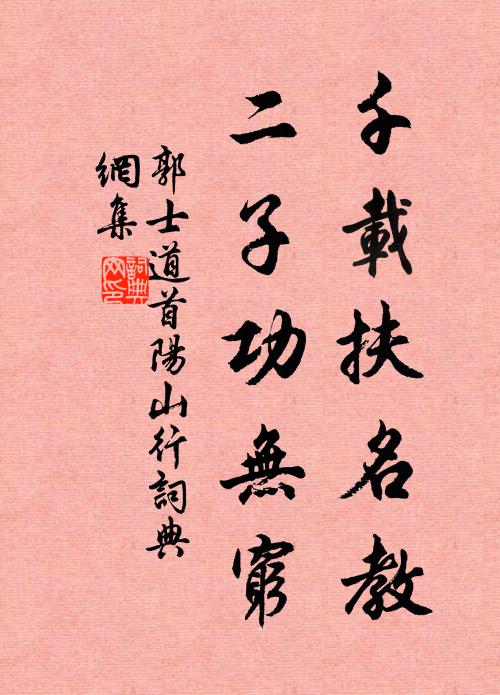 千載扶名教
二子功無窮
郭士道首陽山行詞典
網集
詞典網印